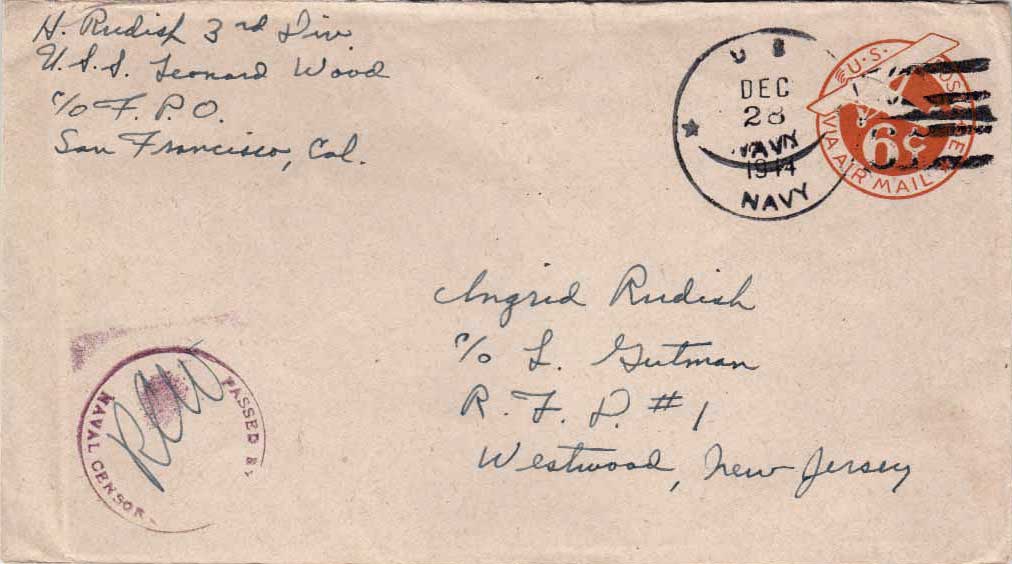 H. Rudish 3rd Div.
U.S.S. Leonard Wood
c/o F. P. O.
San Francisco, Cal.
U S
DEC
28
NAVY
1944
NAVY
U.S. POSTAGE
6¢
VIA AIR MAIL
Ingrid Rudish
c/o L. Gutman
R. F. D. #1
Westwood, New Jersey
PASSED BY
NAVAL CENSOR